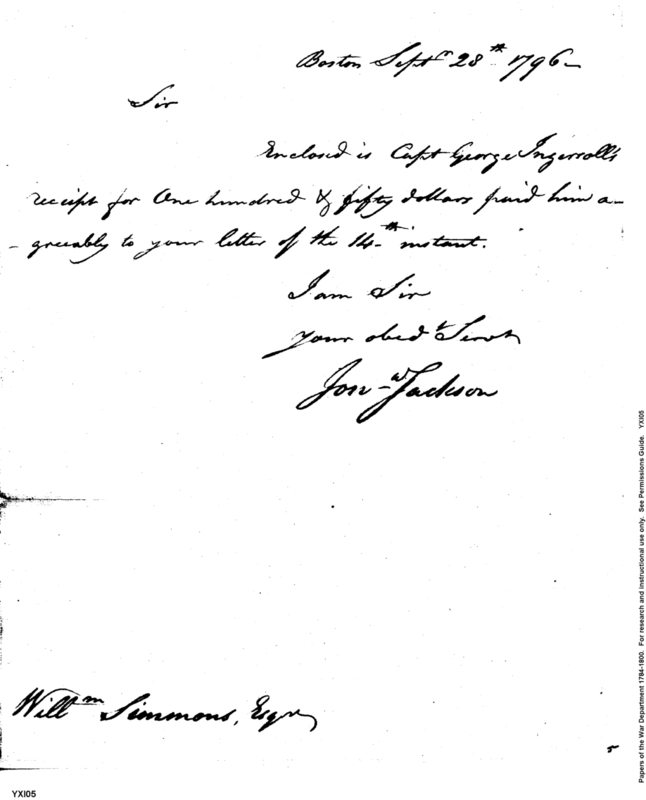 Boston Septr 28th 1796-
Sir
Enclosed is Capt George Ingersoll's
receipt for One hundred & fifty dollars paid him a-
-greeably to your letter of the 14th instant.
I am Sir
your obedt Servt
Jonn Jackson
Willm Simmons, Esqr
5
YXI05
Papers of the War Department 1784-1800. For research and instructional use only. See Permissions Guide. YXI05